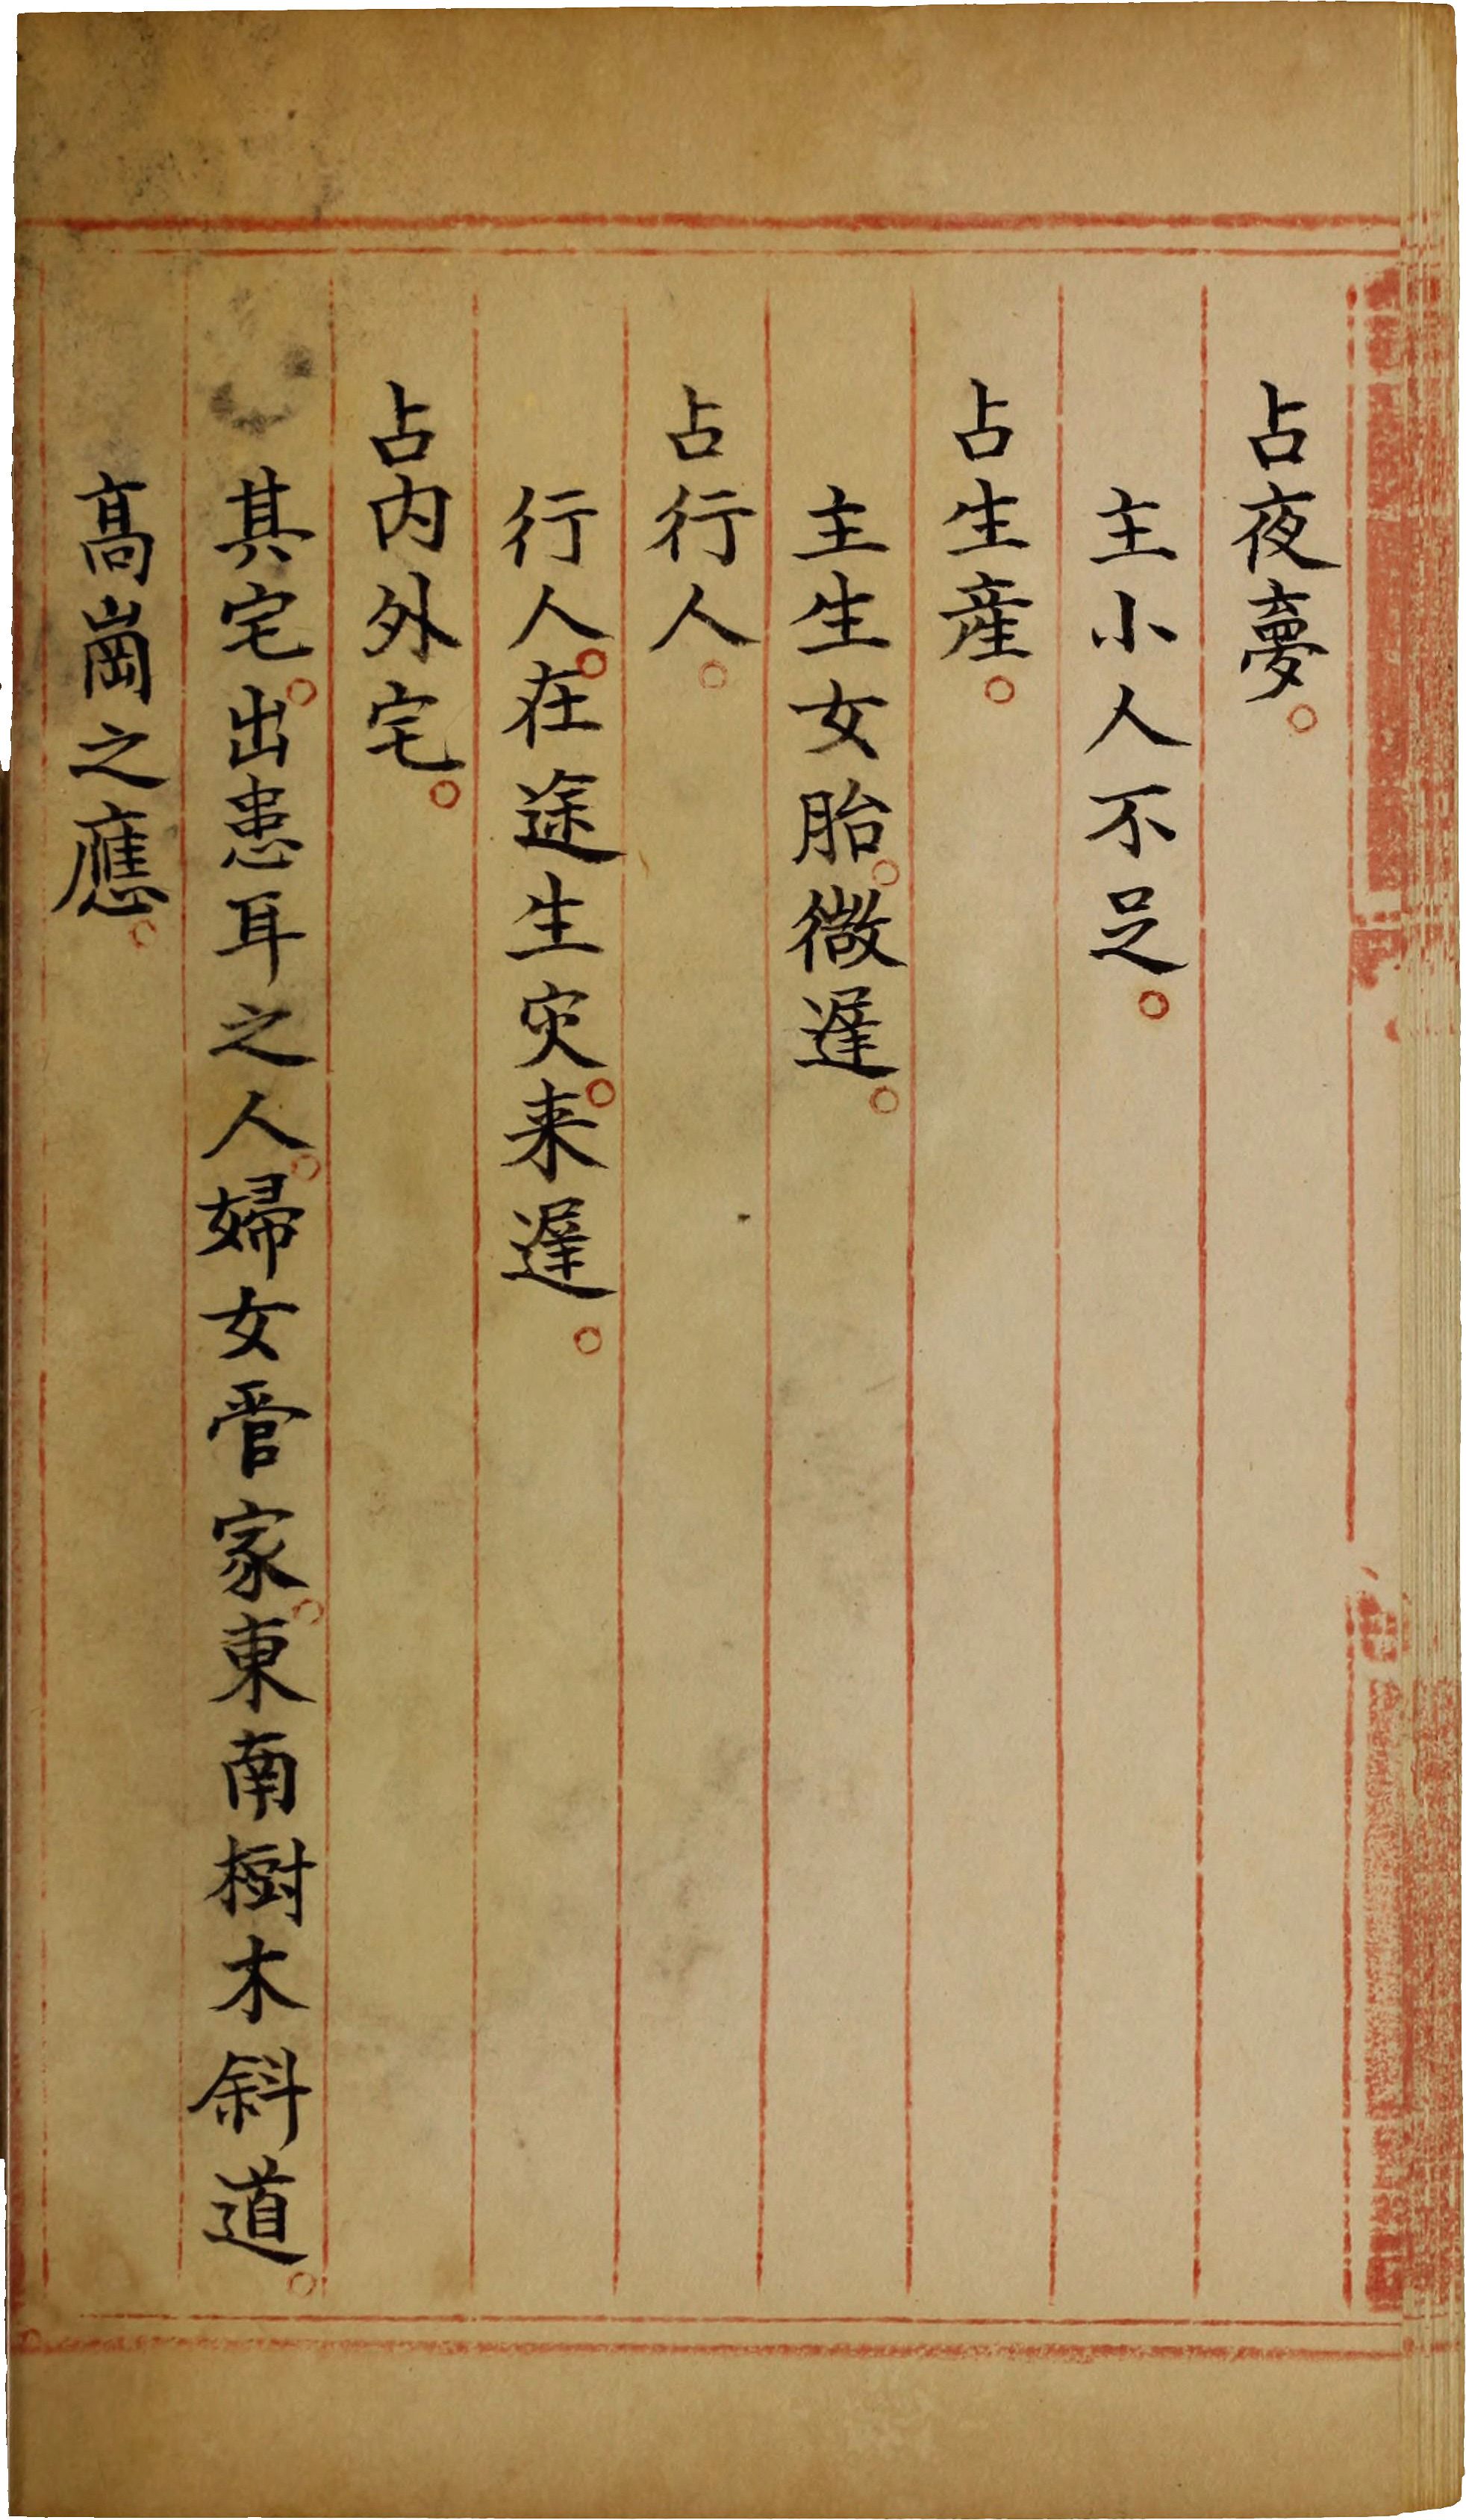 占夜夢。
主小人不足。
占生産。
主生女胎。微遲。
占行人。
行人。在途生灾。来遲。
占内外宅。
其宅。出患耳之人。婦女管家。東南樹木斜道。
髙崗之應。